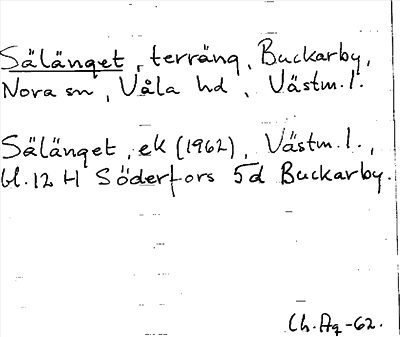 Sälänget, terräng, Buckarby,
Nora sn, Våla hd, Västm.l.
Sälänget, ek (1962), Västm.l.,
bl. 12 H Söderfors 5d Buckarby.
Ch. Ag -62.